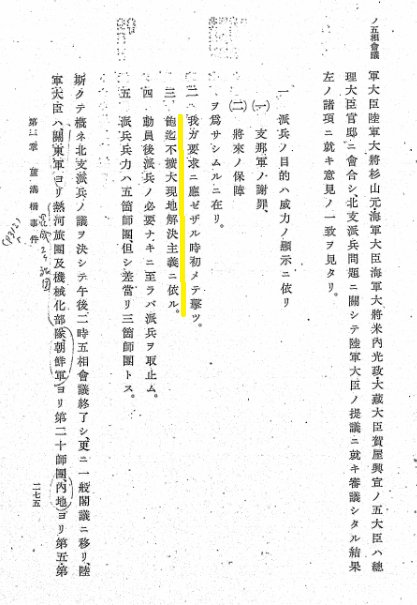 ノ五相會議
軍大臣陸軍大將杉山元海軍大臣海軍大將米內光政、大藏大臣賀屋興宣ノ五大臣ハ總
理大臣官邸ニ會合シ、北支派兵問題ニ關シテ陸軍大臣ノ提議ニ就キ審議シタル結果
左ノ諸項ニ就キ意見ノ一致ヲ見タリ。
一 派兵ノ目的ハ威力ノ顯示ニ依リ
(一) 支那軍ノ謝罪、
(二) 將來ノ保障
ヲ爲サシムルニ在リ。
二 我ガ要求ニ應ゼザル時初メテ擊ツ。
三 飽迄不擴大現地解決主義ニ依ル。
四 動員後派兵ノ必要ナキニ至ラバ派兵ヲ取止ム。
五 派兵兵力ハ五箇師團、但シ差當リ三箇師團トス。
斯クテ槪ネ北支派兵ノ議ヲ決シテ午後二時五相會議終了シ、更ニ一般閣議ニ移リ、陸
軍大臣ハ關東軍ヨリ熱河旅團及機械化部隊、朝鮮軍ヨリ第二十師團、內地ヨリ第五、第
第二章 蘆溝橋事件
二七五